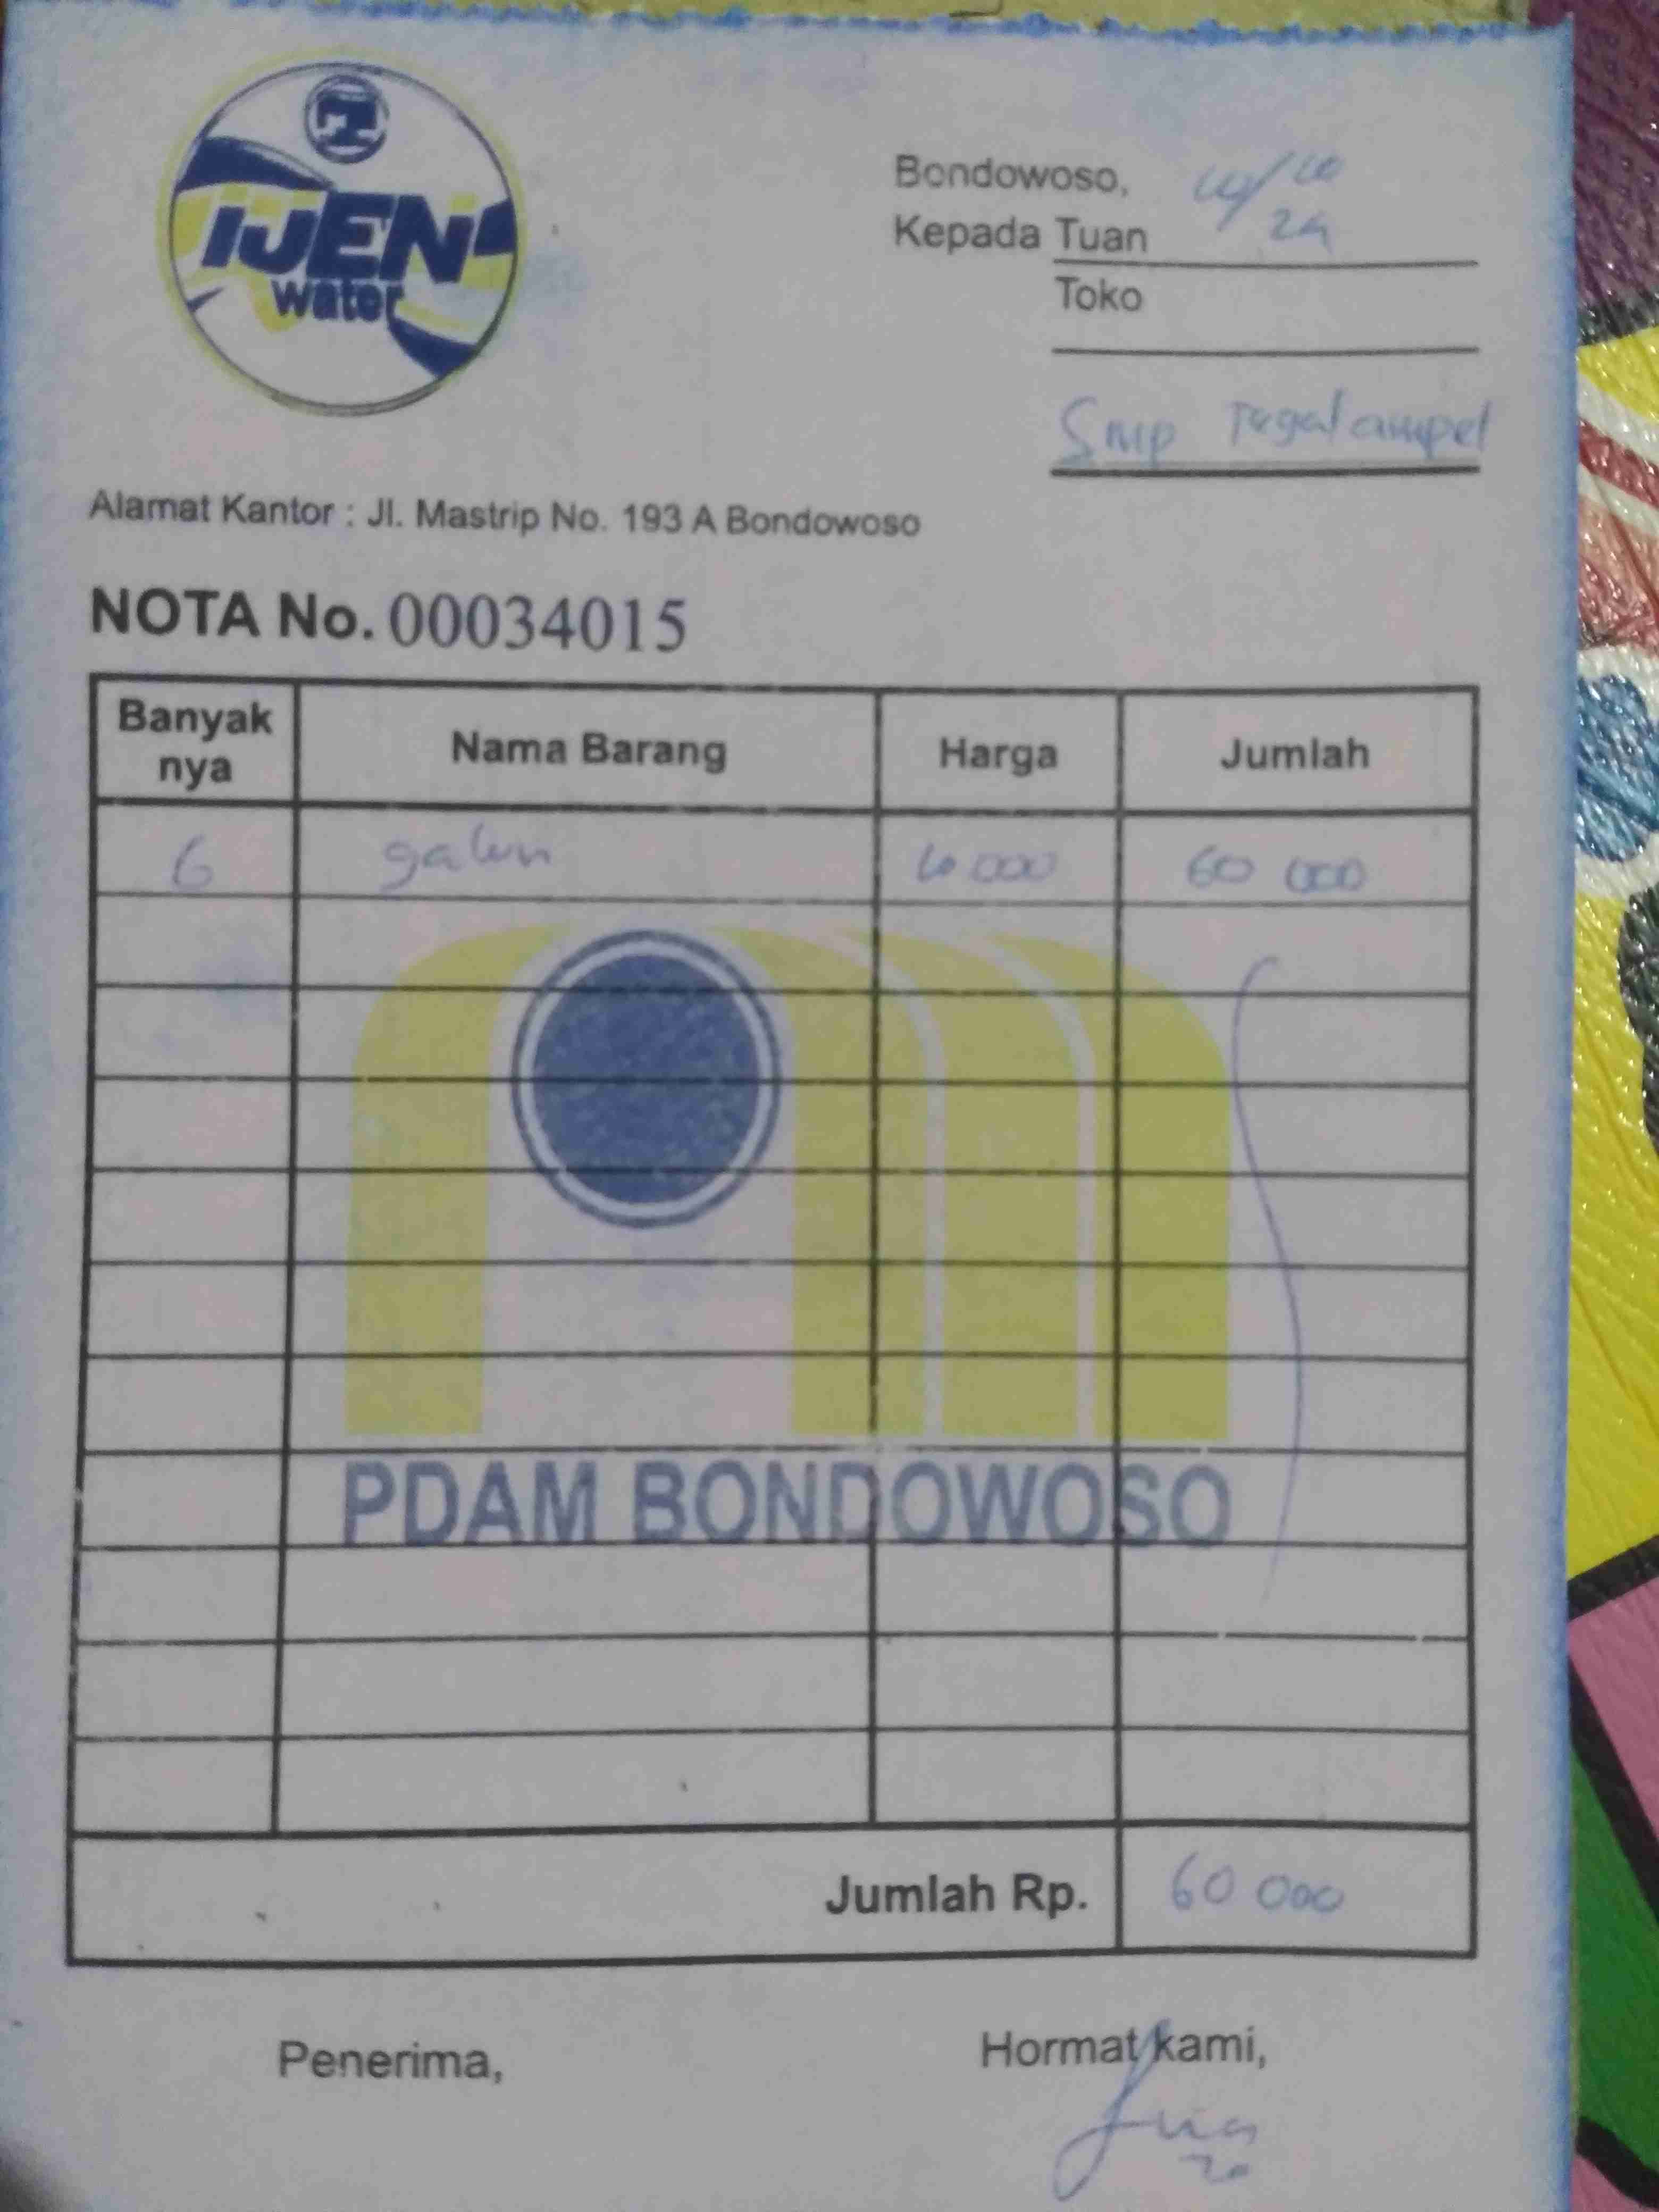 IJEN
water
Bondowoso, 10/10
24
Kepada Tuan
Toko
Smp Tegalampel
Alamat Kantor : Jl. Mastrip No. 193 A Bondowoso
NOTA No. 00034015
Banyak nya Nama Barang Harga Jumlah
6 galon 10 000 60 000
PDAM BONDOWOSO
Jumlah Rp. 60 000
Penerima, Hormat kami,